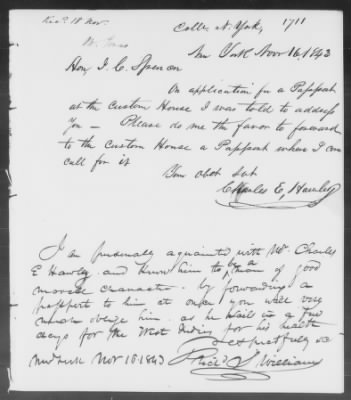 Recd 18 Nov.
Coll. N. York, 1711
New York Nov 16. 1843
Hon J. C. Spencer
On application for a Passport
at the Custom House I was told to address
You — Please do me the favor to forward
to the Custom House a Passport where I can
call for it
Your obdt Svt
Charles E, Hawley
I am personally aquainted with Mr. Charles
E Hawley and know him to be a man of good
morral character. by forwarding a
passport to him at once you will very
much obeige him as he sails in a few
days for the West Indies for his health
Respectfully
New York Nov 16 1843 Richd S Williams